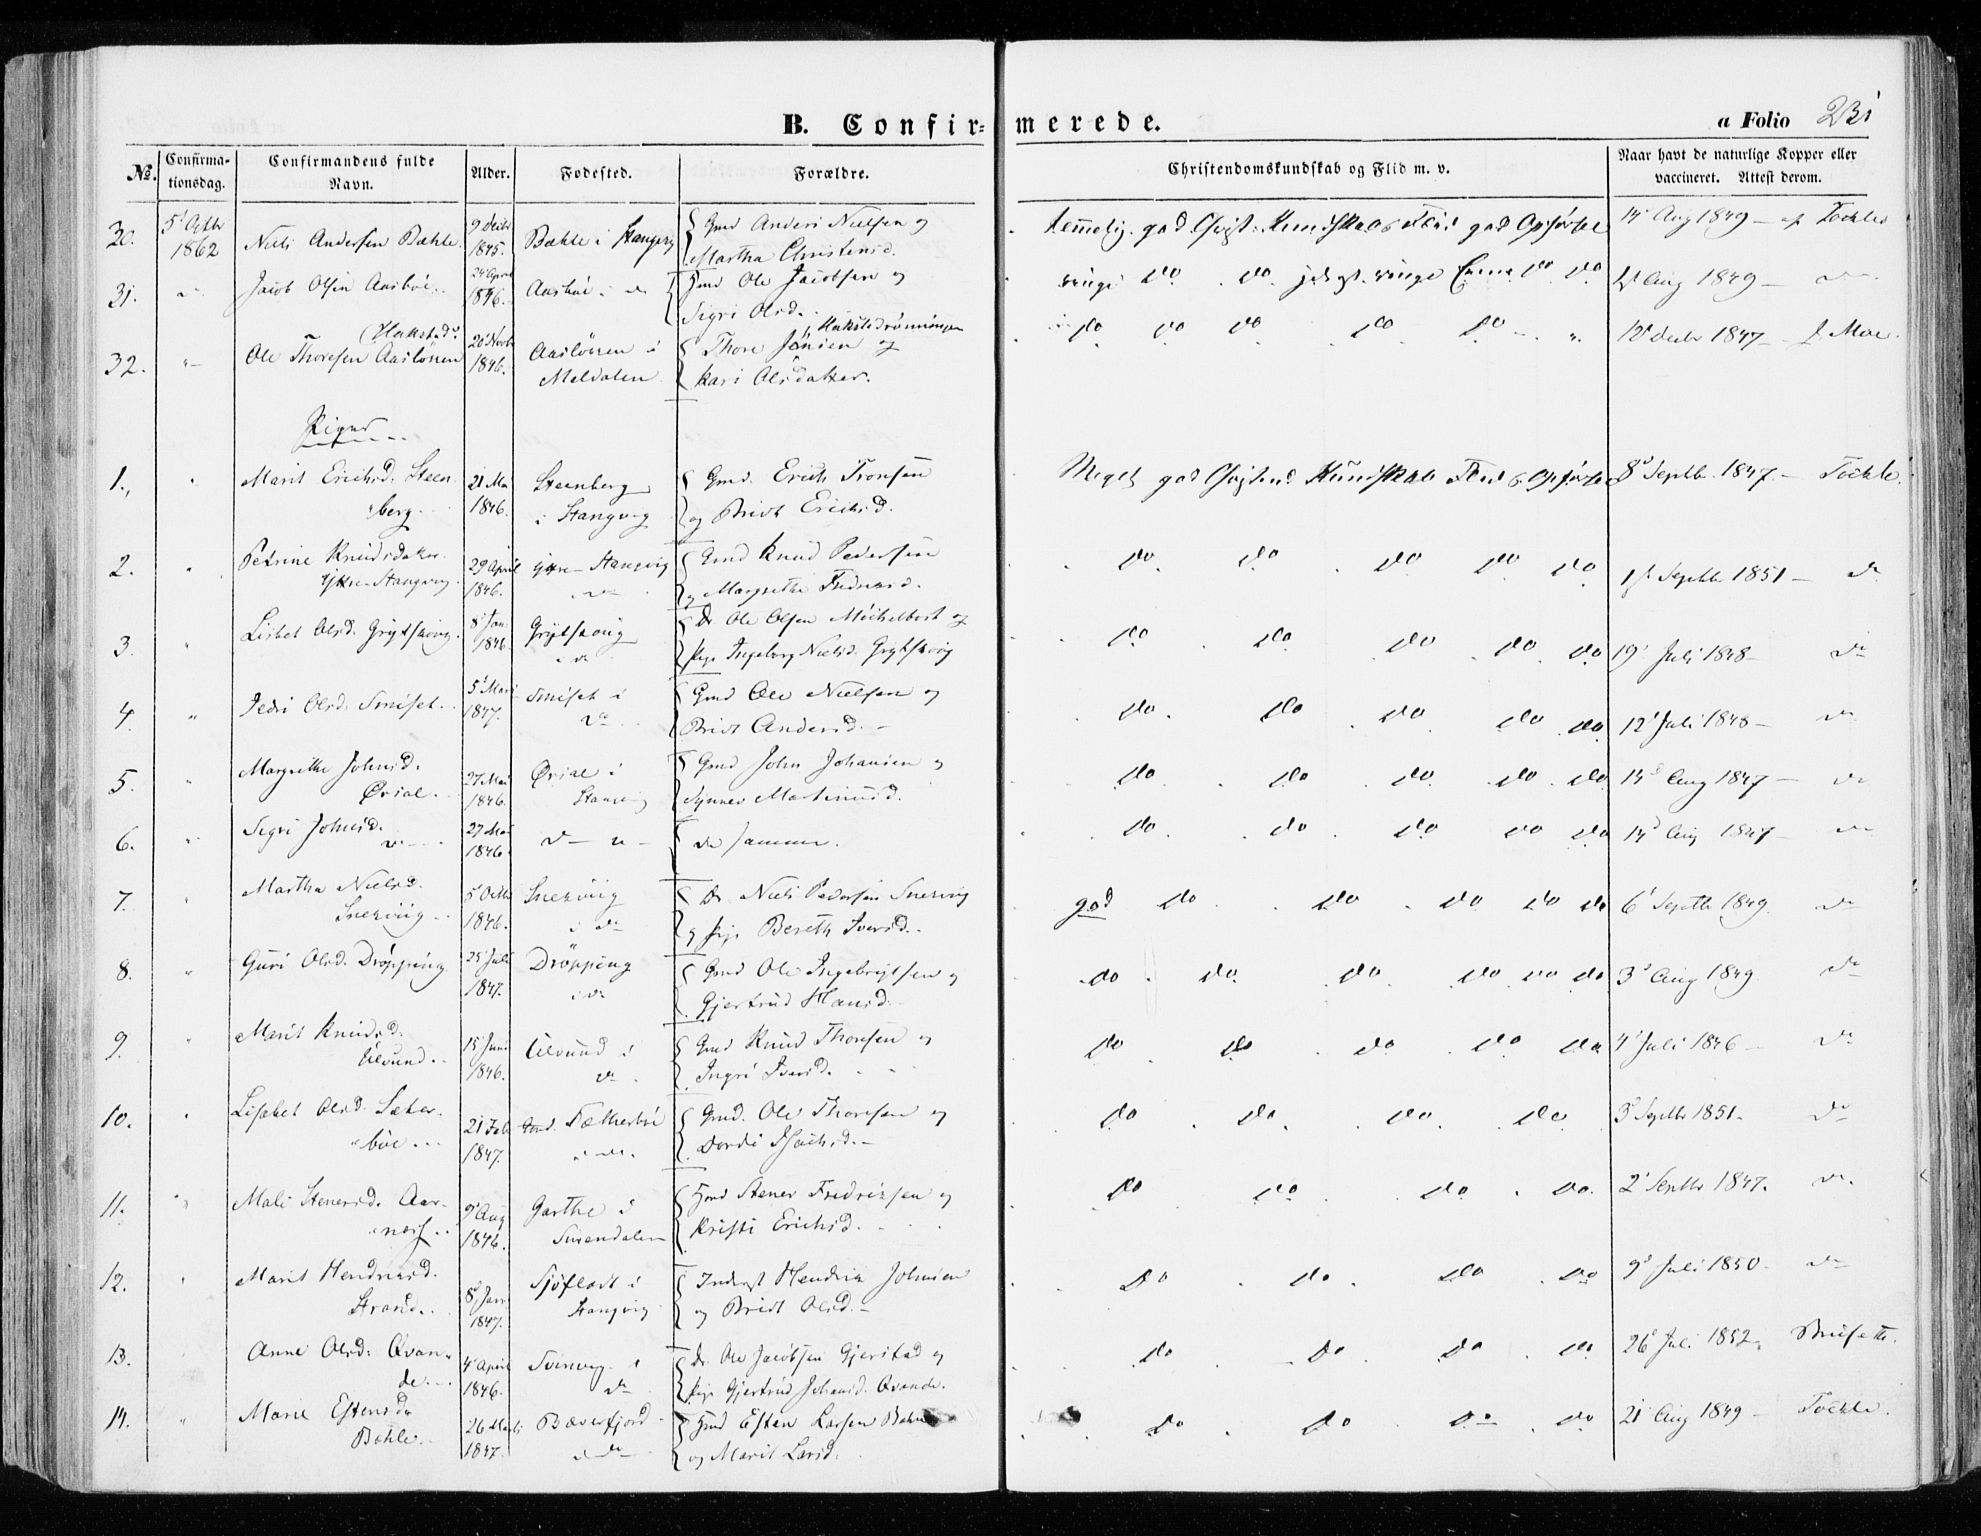 B. Confir= merede.
a Folio 231
No. Confirma-tionsdag. Confirmandens fulde Navn. Alder. Fødested. Forældre. Christendomskundskab og Flid m. v. Naar havt de naturlige Kopper eller vaccineret. Attest derom.
30. 5' Octb 1862 Niels Andersen Bæhle 9 Decbr 1845. Bæhle i Stangvig Gmd Anders Nielsen og
Martha Christensd. temelig god Christ. Kundskab Flid god Opførsel 14' Aug 1849 - af Töchle
31. Jacob Olsen Aasbøe 24 April 1846. Aasbøe i do Hmd Ole Jacobsen og
Sigri Olsd. ringe do do do do 1849 -
32. Ole Thoresen Aaslönen 26' Novb 1846. Aaslönen i Meldalen Thore Jönsen og
Kari Olsdatter. do do do do do 12' decbr 1847 - f. Moe.
Piger
1. Marit Erichsd. Steenberg 21 Mai 1846. Steenberg i Stangvig Gmd. Erich Tronsen
og Bridt Erichsd. Meget god Christend. Kundskab Flid & Opførsel 8' Septbr. 1847. - Töchle.
2. Petrine Knudsdatter Ytre-Stangvig 29 April 1846. Ytre-Stangvig do Gmd Knud Pedersen
og Margrethe do do do do do Septbr 1851 - do
3. Lisbet Olsd. Grytskoug 8' Jan 1846 Grytskoug i do Ole Olsen og
Pige Ingeborg Nielsd. Grytskoug do do do do do 19' Juli 1848 - do
4. Olsd. Smiset 5' Marts 1847. Smiset i do Gmd Ole Nielsen og
Bridt Andersd. - do do do do do 12' Juli 1848 - do
5. Margrethe Johnsd. Ørsal 27 Mai 1846. Ørsal i Stangvig Gmd John Johansen og
Synnev Martinusd. do do do do do 14' Aug 1847 - do
6. Sigri Johnsd. do 27 Mai 1846 do de samme. do do do do do 14' Aug 1847 - do
7. Martha Nielsd. Snekvig 5' Octb 1846. Snekvig i do Niels Pedersen Snekvig
og Pige Bereth Iversd. god do do do do do 6' Septb 1849. do
8. Guri Olsd. Dröpping 25' Juli 1847. Dröpping i do Gmd Ole Ingebrigtsen og
Gjertrud Hansd. do do do do do do 3' Aug 1849. do
9. Marit Knudsd. Ulvund 15' Juni 1846. Ulvund i do Gmd Knud Thoresen og
Ingri Iversd. do do do do do 4' Juli 1846 - do
10. Lisabet Olsd. Sæterbøe 21 Feb 1847. i do Gmd. Ole Thoresen og
Dordi do do do do 3' Septbr 1851. do
11. Mali Stenersd. Aarnæs 9' Aug 1846. Garthe i Surendalen Hmd Stener Fredriksen og
Kristi Erichsd. do do do do 2' Septbr 1847. do
12. Marit Hendriksd. Strand 8' Jan 1847. Sjøflodt i Stangvig Inderst Hendrik Johnsen
og Bridt Olsd. - do do do do 9' Juli 1850. do
13. Anne Olsd. Qvande 4' April 1846. Svinvig i do Ole Jacobsen Gjerstad og
Pige Gjertrud Johansd. Qvande. do do do do 26' Juli 1852.
14. Marie Estensd. Bøhle 26 Marts 1847. Bæverfjord i do Hmd Esten Larsen
og Marit Larsd. do do do do 21' Aug 1849 - Töchle.